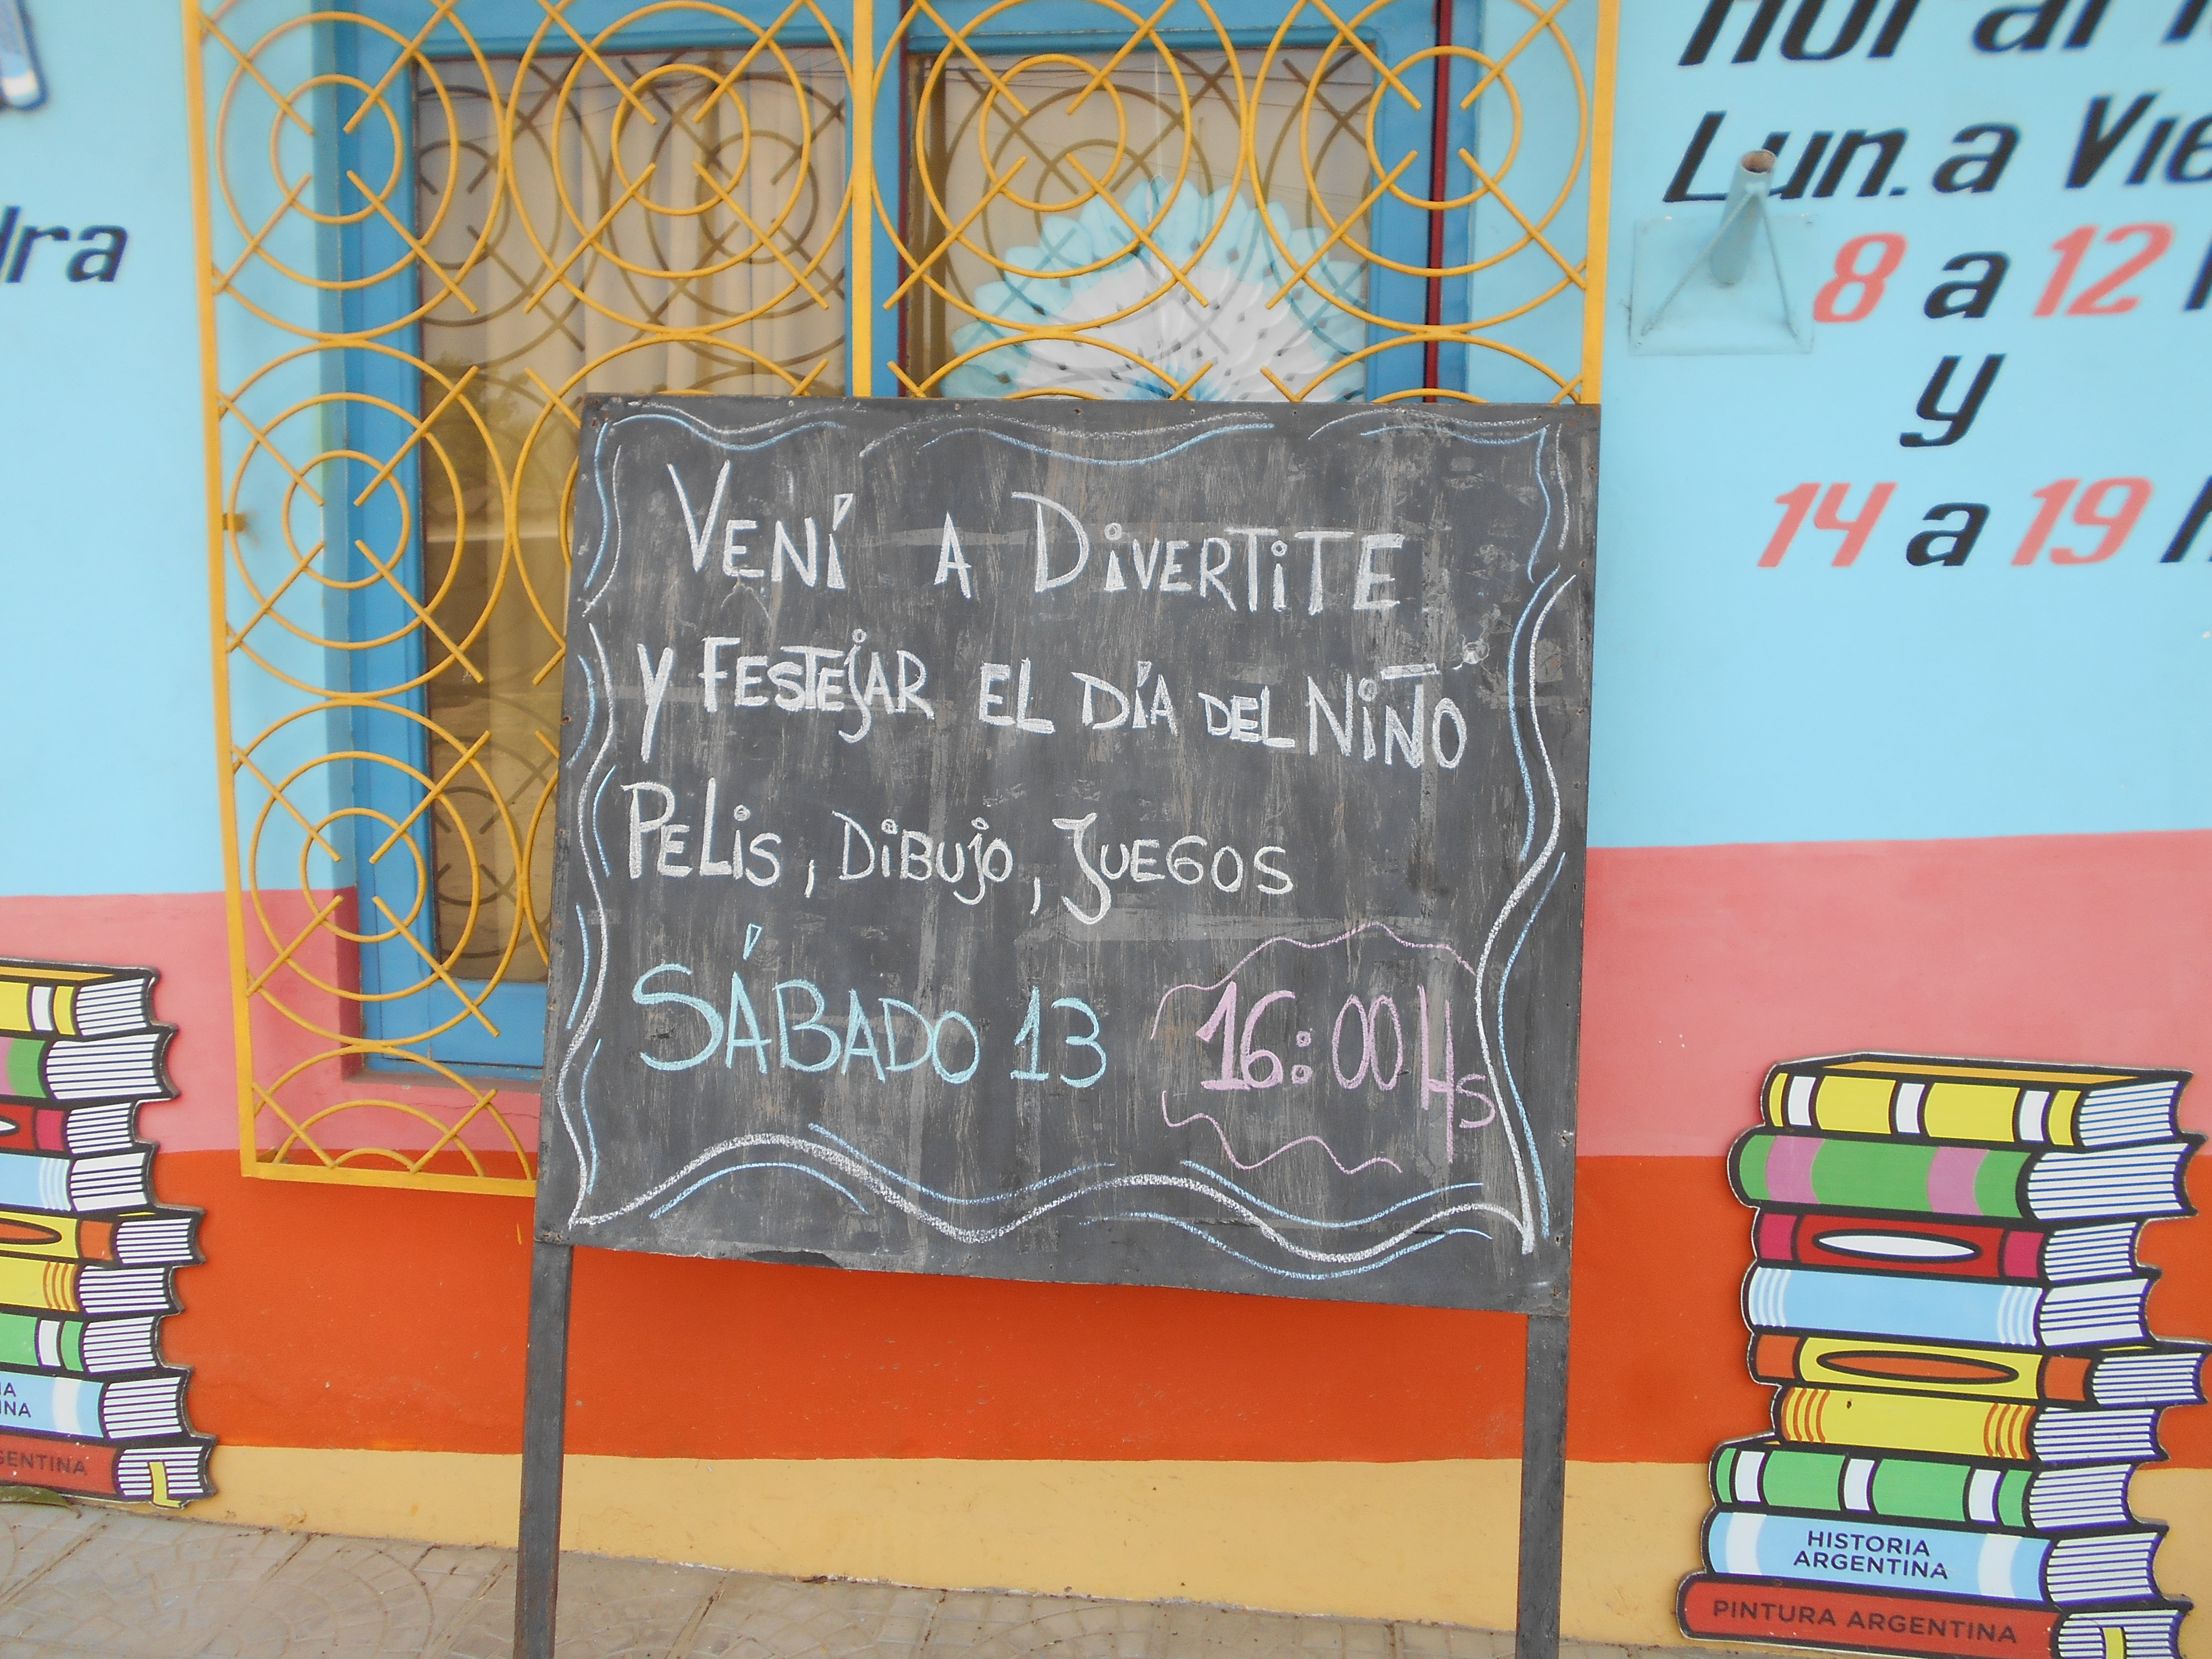 VENÍ A DIVERTITE
Y FESTEJAR EL DÍA DEL NIÑO
PELIS, DIBUJO, JUEGOS
SÁBADO 13 16:00 Hs
Lun. a Vie
8 a 12
y
14 a 19
HISTORIA
ARGENTINA
PINTURA ARGENTINA